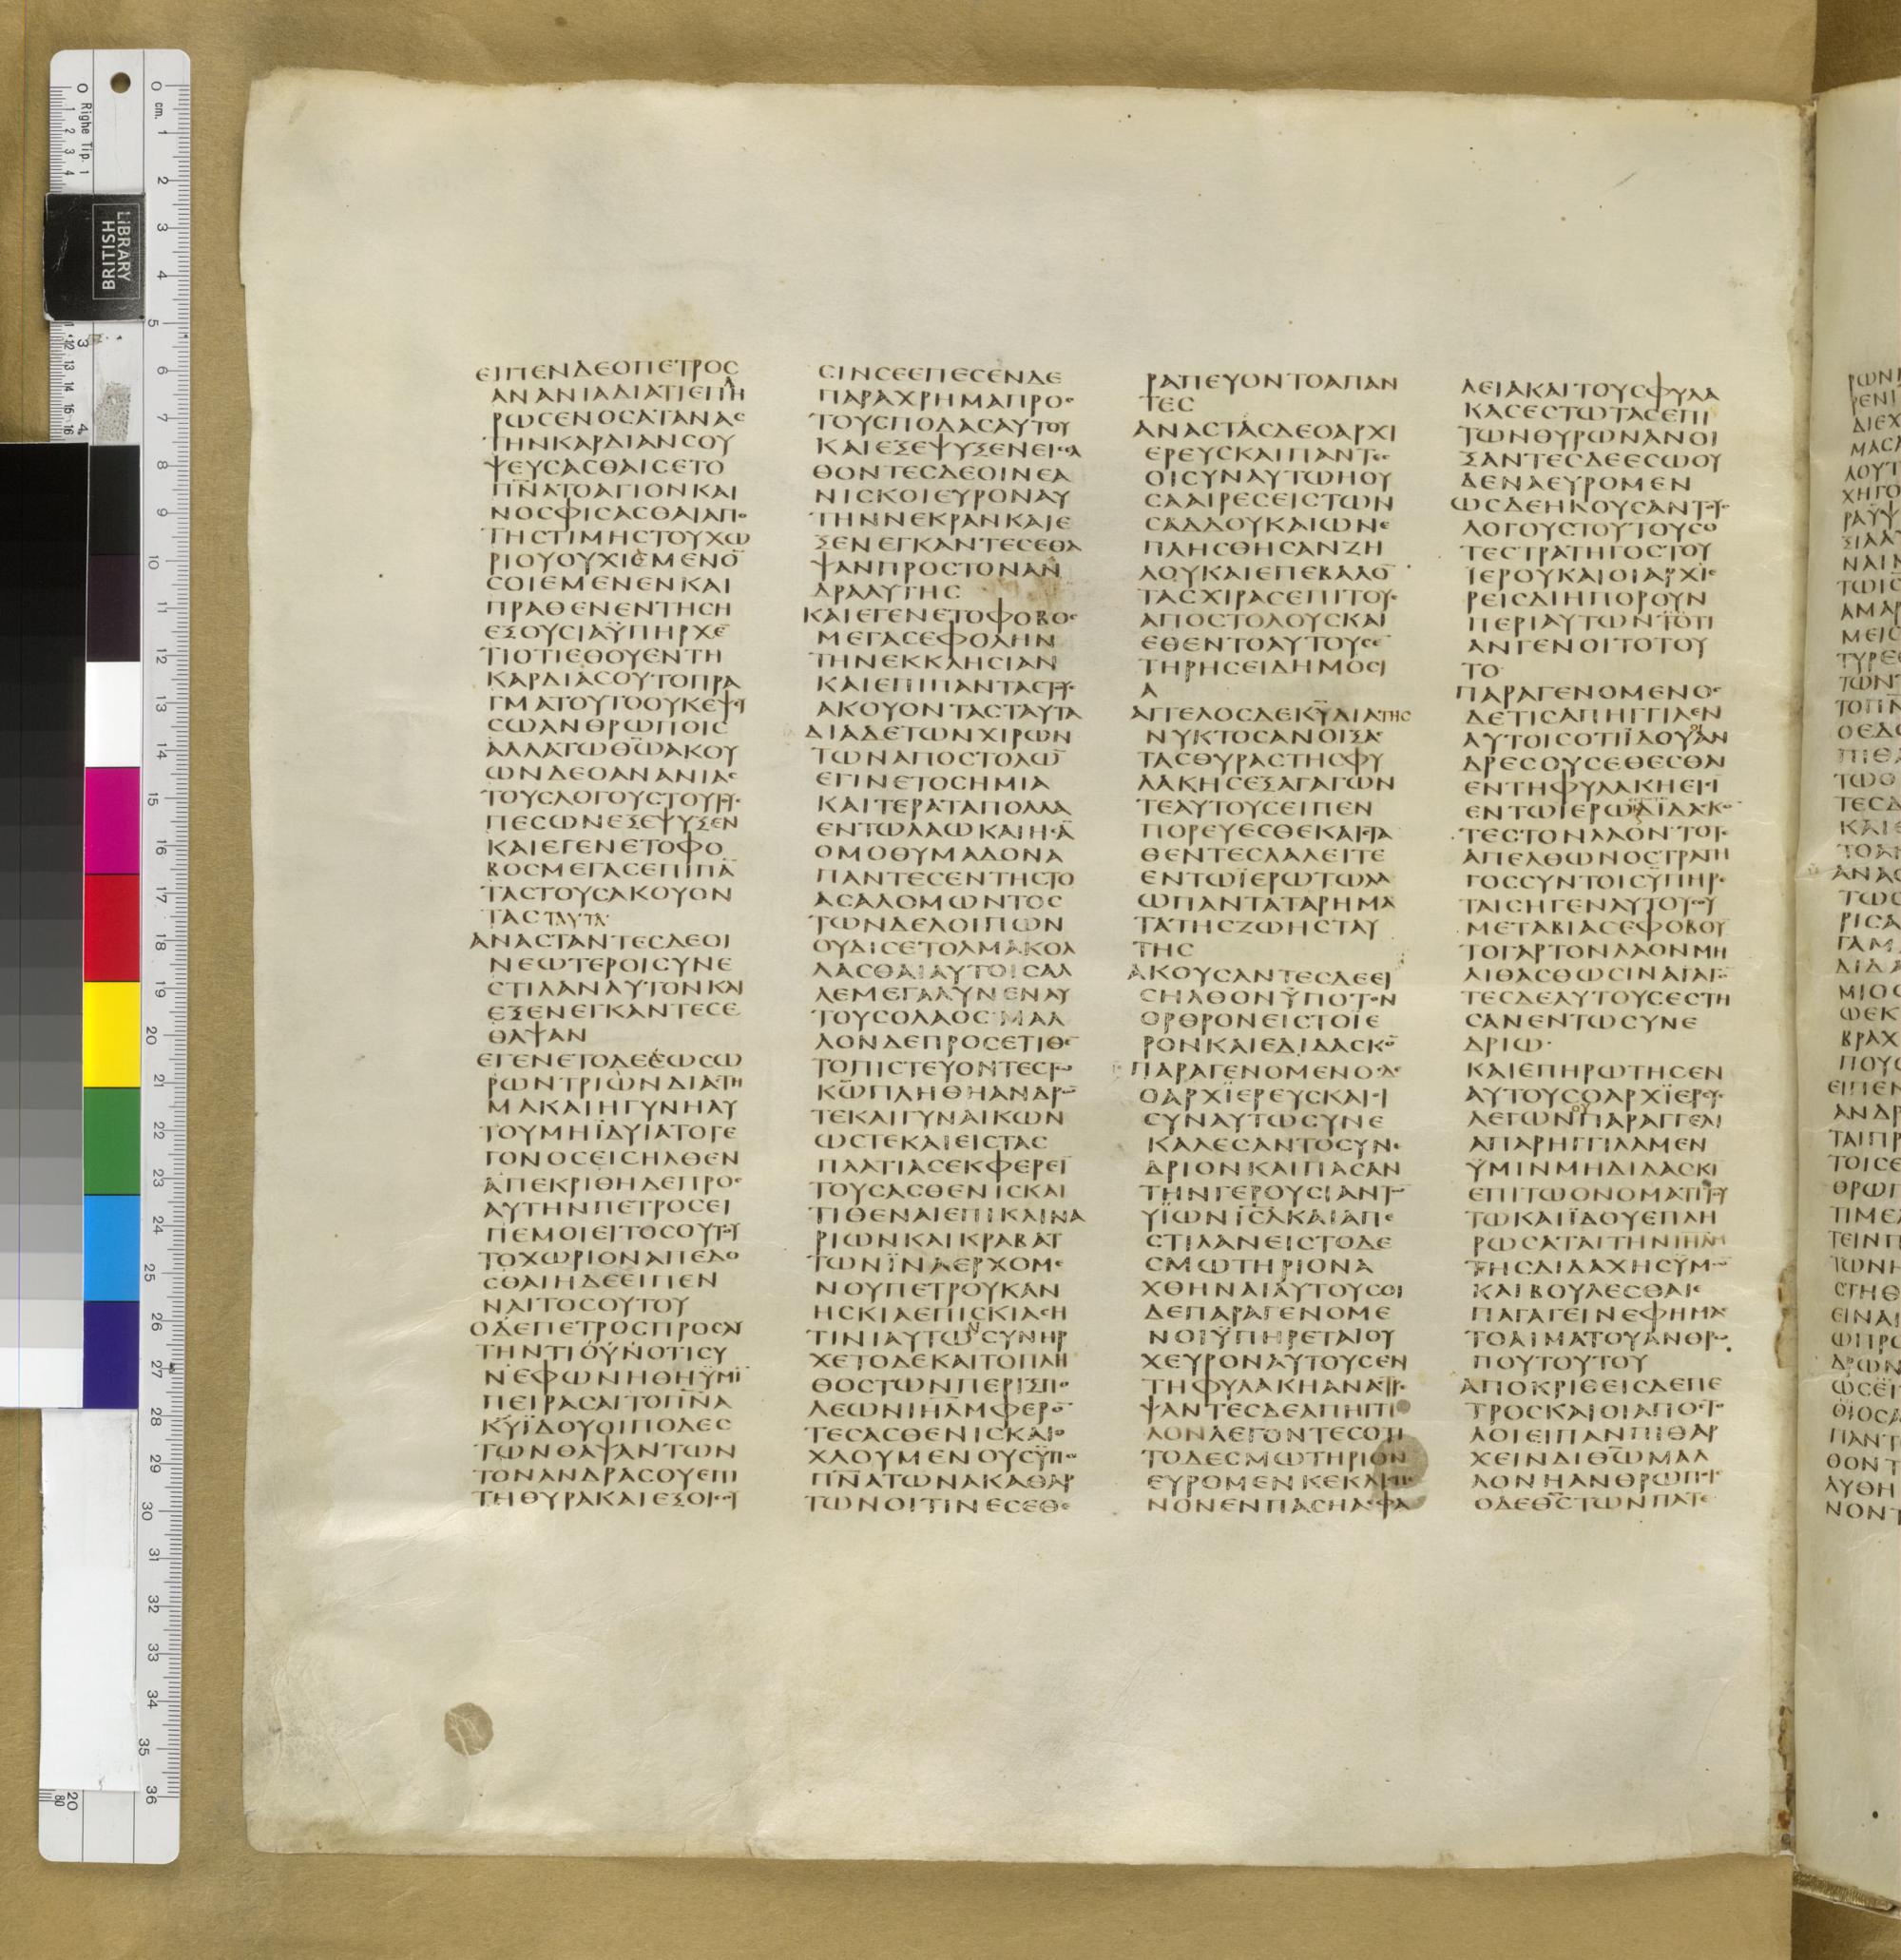 ΕΙΠΕΝΔΕΟΠΕΤΡΟϹ
ΑΝΑΝΙΑΔΙΑΤΙΕΠΗ
ΡΩϹΕΝΟϹΑΤΑΝΑϹ
ΤΗΝΚΑΡΔΙΑΝϹΟΥ
ΨΕΥϹΑϹΘΑΙϹΕΤΟ
ΠΝ̅ΑΤΟΑΓΙΟΝΚΑΙ
ΝΟϹΦΙϹΑϹΘΑΙΑΠΟ
ΤΗϹΤΙΜΗϹΤΟΥΧΩ
ΡΙΟΥΟΥΧΙΕΜΕΝΟ̅
ϹΟΙΕΜΕΝΕΝΚΑΙ
ΠΡΑΘΕΝΕΝΤΗϹΗ
ΕΞΟΥϹΙΑΫΠΗΡΧΕ̅
ΤΙΟΤΙΕΘΟΥΕΝΤΗ
ΚΑΡΔΙΑϹΟΥΤΟΠΡΑ
ΓΜΑΤΟΥΤΟΟΥΚΕΨΕΥ
ϹΩΑΝΘΡΩΠΟΙϹ
ΑΛΛΑΤΩΘ̅Ω̅ΑΚΟΥ
ΩΝΔΕΟΑΝΑΝΙΑϹ
ΤΟΥϹΛΟΓΟΥϹΤΟΥΤΟΥϹ
ΠΕϹΩΝΕΞΕΨΥΞΕΝ
ΚΑΙΕΓΕΝΕΤΟΦΟ
ΒΟϹΜΕΓΑϹΕΠΙΠΑ̅
ΤΑϹΤΟΥϹΑΚΟΥΟΝ
ΤΑϹΤΑΥΤΑ
ΑΝΑϹΤΑΝΤΕϹΔΕΟΙ
ΝΕΩΤΕΡΟΙϹΥΝΕ
ϹΤΙΛΑΝΑΥΤΟΝΚΑΙ
ΕΞΕΝΕΓΚΑΝΤΕϹΕ
ΘΑΨΑΝ
ΕΓΕΝΕΤΟΔΕΕΩϹΩ
ΡΩΝΤΡΙΩΝΔΙΑϹΤΗ
ΜΑΚΑΙΗΓΥΝΗΑΥ
ΤΟΥΜΗΪΔΥΙΑΤΟΓΕ
ΓΟΝΟϹΕΙϹΗΛΘΕΝ
ΑΠΕΚΡΙΘΗΔΕΠΡΟϹ
ΑΥΤΗΝΠΕΤΡΟϹΕΙ
ΠΕΜΟΙΕΙΤΟϹΟΥΤΟΥ
ΤΟΧΩΡΙΟΝΑΠΕΔΟ
ϹΘΑΙΗΔΕΕΙΠΕΝ
ΝΑΙΤΟϹΟΥΤΟΥ
ΟΔΕΠΕΤΡΟϹΠΡΟϹΑΥ
ΤΗΝΤΙΟΥΝΟΤΙϹΥ
ΝΕΦΩΝΗΘΗΫΜΙ̅
ΠΕΙΡΑϹΑΙΤΟΠΝ̅Α
Κ̅Υ̅ΪΔΟΥΟΙΠΟΔΕϹ
ΤΩΝΘΑΨΑΝΤΩΝ
ΤΟΝΑΝΔΡΑϹΟΥΕΠΙ
ΤΗΘΥΡΑΚΑΙΕΞΟΙϹΟΥ
ϹΙΝϹΕΕΠΕϹΕΝΔΕ
ΠΑΡΑΧΡΗΜΑΠΡΟϹ
ΤΟΥϹΠΟΔΑϹΑΥΤΟΥ
ΚΑΙΕΞΕΨΥΞΕΝΕΙϹΕΛ
ΘΟΝΤΕϹΔΕΟΙΝΕΑ
ΝΙϹΚΟΙΕΥΡΟΝΑΥ
ΤΗΝΝΕΚΡΑΝΚΑΙΕ
ΞΕΝΕΓΚΑΝΤΕϹΕΘΑ
ΨΑΝΠΡΟϹΤΟΝΑΝ
ΔΡΑΑΥΤΗϹ
ΚΑΙΕΓΕΝΕΤΟΦΟΒΟϹ
ΜΕΓΑϹΕΦΟΛΗΝ
ΤΗΝΕΚΚΛΗϹΙΑΝ
ΚΑΙΕΠΙΠΑΝΤΑϹΤΟΥϹ
ΑΚΟΥΟΝΤΑϹΤΑΥΤΑ
ΔΙΑΔΕΤΩΝΧΙΡΩΝ
ΤΩΝΑΠΟϹΤΟΛΩ̅
ΕΓΙΝΕΤΟϹΗΜΙΑ
ΚΑΙΤΕΡΑΤΑΠΟΛΛΑ
ΕΝΤΩΛΑΩΚΑΙΗϹΑ̅
ΟΜΟΘΥΜΑΔΟΝΑ
ΠΑΝΤΕϹΕΝΤΗϹΤΟ
ΑϹΑΛΟΜΩΝΤΟϹ
ΤΩΝΔΕΛΟΙΠΩΝ
ΟΥΔΙϹΕΤΟΛΜΑΚΟΛ
ΛΑϹΘΑΙΑΥΤΟΙϹΑΛ
ΛΕΜΕΓΑΛΥΝΕΝΑΥ
ΤΟΥϹΟΛΑΟϹΜΑΛ
ΛΟΝΔΕΠΡΟϹΕΤΙΘΕ
ΤΟΠΙϹΤΕΥΟΝΤΕϹΤΩ
Κ̅Ω̅ΠΛΗΘΗΑΝΔΡΩ̅
ΤΕΚΑΙΓΥΝΑΙΚΩΝ
ΩϹΤΕΚΑΙΕΙϹΤΑϹ
ΠΛΑΤΙΑϹΕΚΦΕΡΕΙ̅
ΤΟΥϹΑϹΘΕΝΙϹΚΑΙ
ΤΙΘΕΝΑΙΕΠΙΚΛΙΝΑ
ΡΙΩΝΚΑΙΚΡΑΒΑΤ
ΤΩΝΪΝΑΕΡΧΟΜΕ
ΝΟΥΠΕΤΡΟΥΚΑΝ
ΗϹΚΙΑΕΠΙϹΚΙΑϹΗ
ΤΙΝΙΑΥΤΩΝϹΥΝΗΡ
ΧΕΤΟΔΕΚΑΙΤΟΠΛΗ
ΘΟϹΤΩΝΠΕΡΙΞΠΟ
ΛΕΩΝΙΗΛΜΦΕΡΟ̅
ΤΕϹΑϹΘΕΝΙϹΚΑΙΟ
ΧΛΟΥΜΕΝΟΥϹΫΠΟ
ΠΝ̅ΑΤΩΝΑΚΑΘΑΡ
ΤΩΝΟΙΤΙΝΕϹΕΘΕ
ΡΑΠΕΥΟΝΤΟΑΠΑΝ
ΤΕϹ
ΑΝΑϹΤΑϹΔΕΟΑΡΧΙ
ΕΡΕΥϹΚΑΙΠΑΝΤΕϹ
ΟΙϹΥΝΑΥΤΩΗΟΥ
ϹΑΑΙΡΕϹΕΙϹΤΩΝ
ϹΑΔΔΟΥΚΑΙΩΝΕ
ΠΛΗϹΘΗϹΑΝΖΗ
ΛΟΥΚΑΙΕΠΕΒΑΛΟ̅
ΤΑϹΧΙΡΑϹΕΠΙΤΟΥϹ
ΑΠΟϹΤΟΛΟΥϹΚΑΙ
ΕΘΕΝΤΟΑΥΤΟΥϹΕ̅
ΤΗΡΗϹΕΙΔΗΜΟϹΙ
Α
ΑΓΓΕΛΟϹΔΕΚ̅Υ̅ΔΙΑΤΗϹ
ΝΥΚΤΟϹΑΝΟΙΞΑϹ
ΤΑϹΘΥΡΑϹΤΗϹΦΥ
ΛΑΚΗϹΕΞΑΓΑΓΩΝ
ΤΕΑΥΤΟΥϹΕΙΠΕΝ
ΠΟΡΕΥΕϹΘΕΚΑΙϹΤΑ
ΘΕΝΤΕϹΛΑΛΕΙΤΕ
ΕΝΤΩΪΕΡΩΤΩΛΑ
ΩΠΑΝΤΑΤΑΡΗΜΑ
ΤΑΤΗϹΖΩΗϹΤΑΥ
ΤΗϹ
ΑΚΟΥϹΑΝΤΕϹΔΕΕΙ
ϹΗΛΘΟΝΫΠΟΤΟΝ
ΟΡΘΡΟΝΕΙϹΤΟΙΕ
ΡΟΝΚΑΙΕΔΙΔΑϹΚΟ̅
ΠΑΡΑΓΕΝΟΜΕΝΟϹΔΕ
ΟΑΡΧΙΕΡΕΥϹΚΑΙΟΙ
ϹΥΝΑΥΤΩϹΥΝΕ
ΚΑΛΕϹΑΝΤΟϹΥΝΕ
ΔΡΙΟΝΚΑΙΠΑϹΑΝ
ΤΗΝΓΕΡΟΥϹΙΑΝΤΩ̅
ΫΪΩΝΙϹ̅Λ̅ΚΑΙΑΠΕ
ϹΤΙΛΑΝΕΙϹΤΟΔΕ
ϹΜΩΤΗΡΙΟΝΑ
ΧΘΗΝΑΙΑΥΤΟΥϹΟΙ
ΔΕΠΑΡΑΓΕΝΟΜΕ
ΝΟΙΫΠΗΡΕΤΑΙΟΥ
ΧΕΥΡΟΝΑΥΤΟΥϹΕΝ
ΤΗΦΥΛΑΚΗΑΝΑϹΤΡΕ
ΨΑΝΤΕϹΔΕΑΠΗΓΓΙ
ΛΟΝΛΕΓΟΝΤΕϹΟΤΙ
ΤΟΔΕϹΜΩΤΗΡΙΟΝ
ΕΥΡΟΜΕΝΚΕΚΛΙϹΜΕ
ΝΟΝΕΝΠΑϹΗΑϹΦΑ
ΛΕΙΑΚΑΙΤΟΥϹΦΥΛΑ
ΚΑϹΕϹΤΩΤΑϹΕΠΙ
ΤΩΝΘΥΡΩΝΑΝΟΙ
ΞΑΝΤΕϹΔΕΕϹΩΟΥ
ΔΕΝΑΕΥΡΟΜΕΝ
ΩϹΔΕΗΚΟΥϹΑΝΤΟΥϹ
ΛΟΓΟΥϹΤΟΥΤΟΥϹΟ
ΤΕϹΤΡΑΤΗΓΟϹΤΟΥ
ΪΕΡΟΥΚΑΙΟΙΑΡΧΙΕ
ΡΕΙϹΔΙΗΠΟΡΟΥΝ
ΠΕΡΙΑΥΤΩΝΤΟΤΙ
ΑΝΓΕΝΟΙΤΟΤΟΥ
ΤΟ
ΠΑΡΑΓΕΝΟΜΕΝΟϹ
ΔΕΤΙϹΑΠΗΓΓΙΛΕΝ
ΑΥΤΟΙϹΟΤΙΪΔΟΥΟΙΑΝ
ΔΡΕϹΟΥϹΕΘΕϹΘΑΙ
ΕΝΤΗΦΥΛΑΚΗΕΙϹΙ
ΕΝΤΩΙΕΡΩΔΙΔΑϹΚΟ̅
ΤΕϹΤΟΝΛΑΟΝΤΟΤΕ
ΑΠΕΛΘΩΝΟϹΤΡΑΤΗ
ΓΟϹϹΥΝΤΟΙϹΫΠΗΡΕ
ΤΑΙϹΗΓΕΝΑΥΤΟΥϹΟΥ
ΜΕΤΑΒΙΑϹΕΦΟΒΟΥ̅
ΤΟΓΑΡΤΟΝΛΑΟΝΜΗ
ΛΙΘΑϹΘΩϹΙΝΑΓΑΓΟ̅
ΤΕϹΔΕΑΥΤΟΥϹΕϹΤΗ
ϹΑΝΕΝΤΩϹΥΝΕ
ΔΡΙΩ
ΚΑΙΕΠΗΡΩΤΗϹΕΝ
ΑΥΤΟΥϹΟΑΡΧΪΕΡΕΥϹ
ΛΕΓΩΝΟΥΠΑΡΑΓΓΕΛΙ
ΑΠΑΡΗΓΓΙΛΑΜΕΝ
ΫΜΙΝΜΗΔΙΔΑϹΚΙ̅
ΕΠΙΤΩΟΝΟΜΑΤΙΤΟΥ
ΤΩΚΑΙΪΔΟΥΕΠΛΗ
ΡΩϹΑΤΑΙΤΗΝΙΗΛΜ
ΤΗϹΔΙΔΑΧΗϹΫΜΩ̅
ΚΑΙΒΟΥΛΕϹΘΑΙΕ
ΠΑΓΑΓΕΙΝΕΦΗΜΑϹ
ΤΟΑΙΜΑΤΟΥΑΝΘΡΩ
ΠΟΥΤΟΥΤΟΥ
ΑΠΟΚΡΙΘΕΙϹΔΕΠΕ
ΤΡΟϹΚΑΙΟΙΑΠΟϹΤΟ
ΛΟΙΕΙΠΑΝΠΙΘΑΡ
ΧΕΙΝΔΙΘ̅Ω̅ΜΑΛ
ΛΟΝΗΑΝΘΡΩΠΟΙϹ
ΟΔΕΘ̅Ϲ̅ΤΩΝΠΑΤΕ
BRITISH
LIBRARY